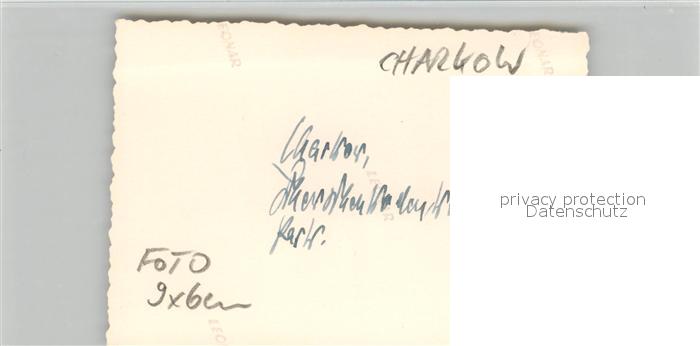 LEONAR
LEONAR
CHARKOW
Charkow,
Park.
privacy protection
Datenschutz
FOTO
9x6cm